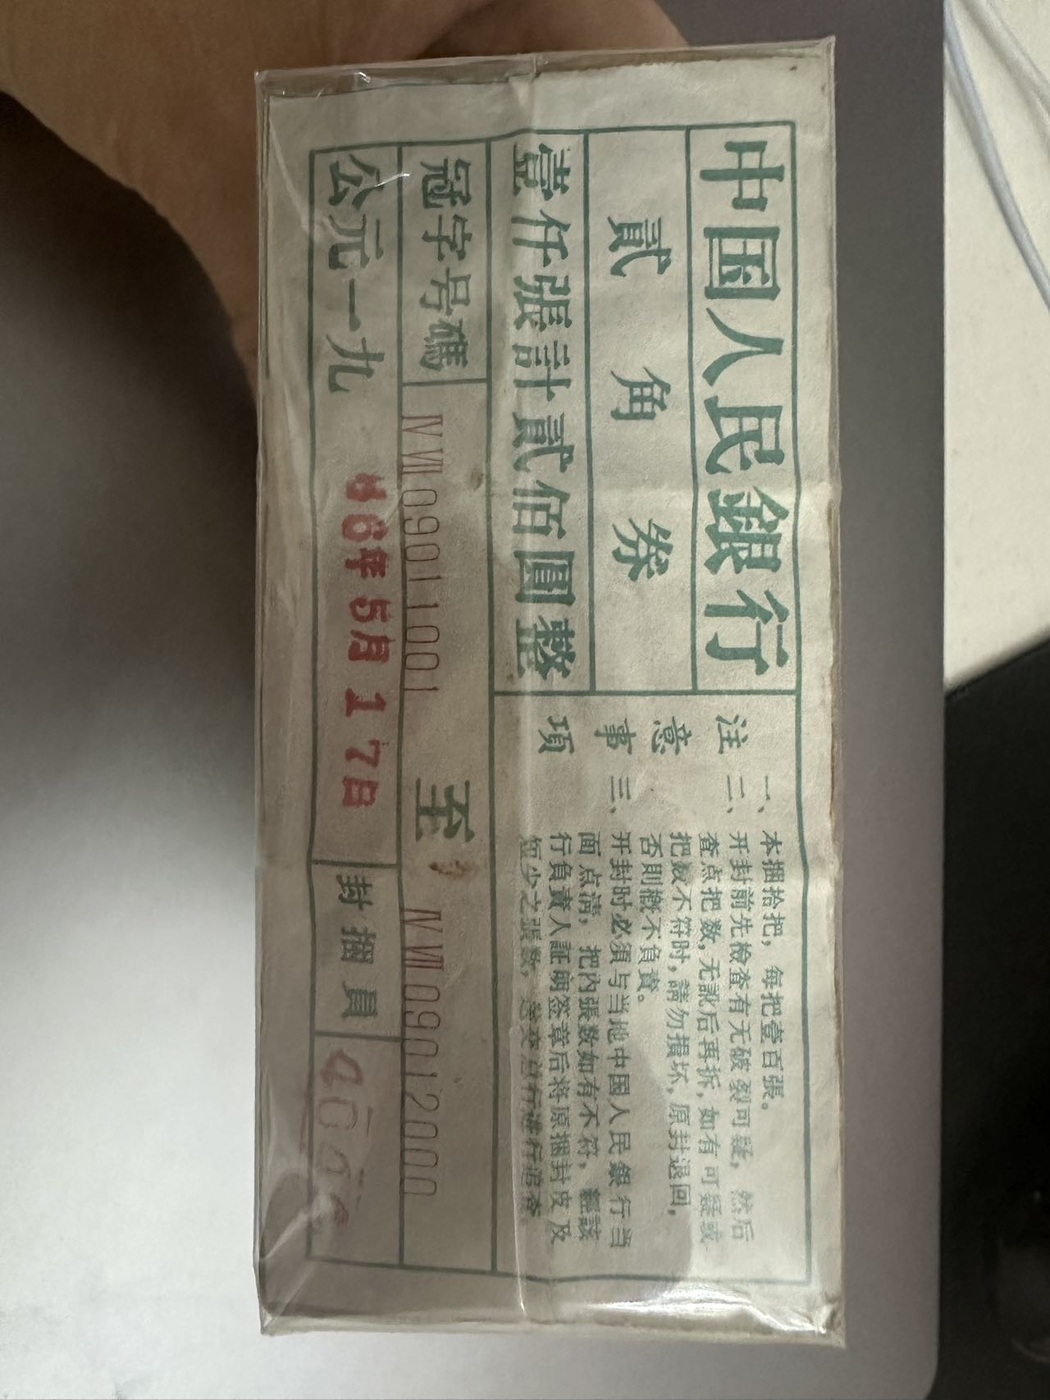 中国人民銀行
貳角券
壹仟張計貳佰圓整
注意事項
一、本捆拾把，每把壹百張。
二、开封前先檢查有无破裂可疑，然后
查点把数，无訛后再拆，如有可疑或
把数不符时，請勿損坏，原封退回，
否則概不負責。
三、开封时必須与当地中国人民銀行当
面点清，把內張数如有不符，
行負責人証明签章后将原捆封皮及
短少之張数，
冠字号碼
ⅣⅧ09011001
至
ⅣⅧ09012000
公元一九
86年5月17日
封捆員